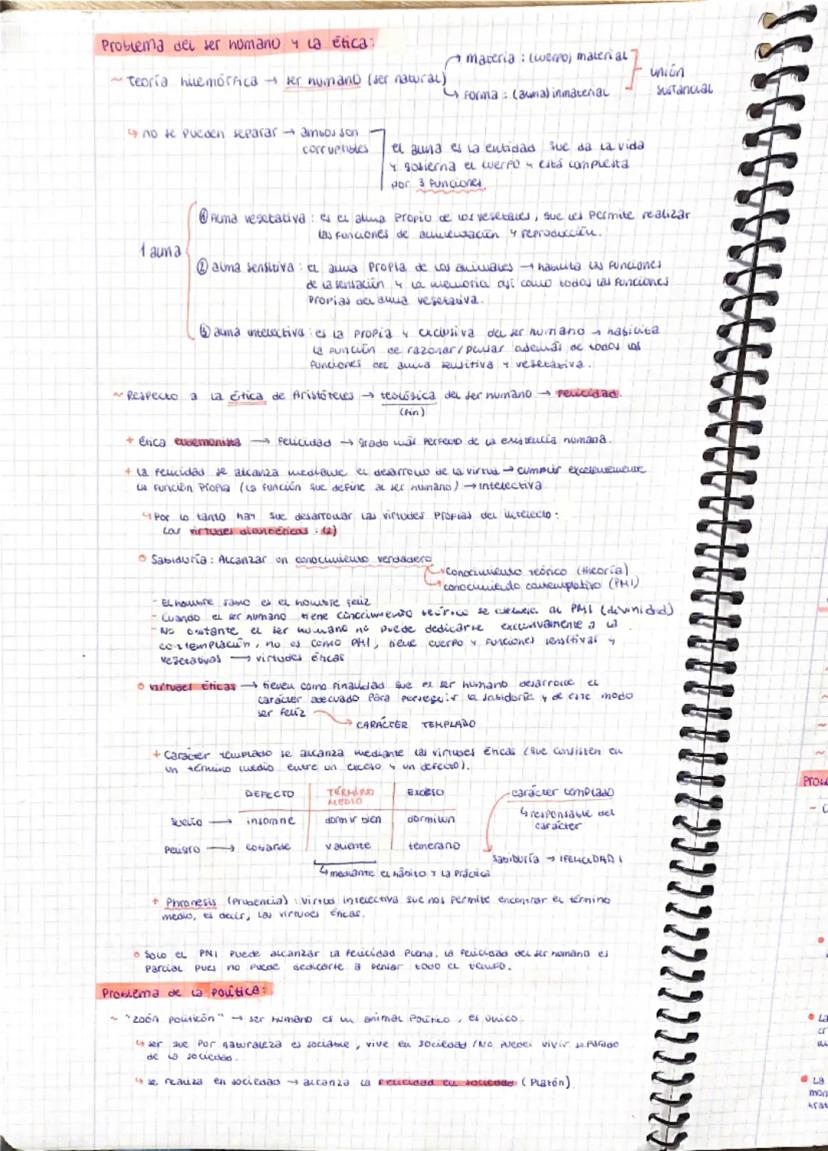 Problema del ser humano y la ética:
~ Teoría hilemórfica → ser humano (ser natural)
→ materia: (cuerpo) material
↳ Forma: (alma) inmaterial
unión sustancial
↳ no se pueden separar → ambos son corruptibles
el alma es la entidad que da la vida
y gobierna el cuerpo y está compuesta
por 3 funciones
1 alma
① Alma vegetativa: es el alma propio de los vegetales, que les permite realizar
las funciones de alimentación y reproducción.
② alma sensitiva: el alma propia de los animales → habilita las funciones
de la sensación y la memoria así como todas las funciones
propias del alma vegetativa.
③ alma intelectiva: es la propia y exclusiva del ser humano → habilita
la función de razonar/pensar además de todas las
funciones del alma sensitiva y vegetativa.
~ Respecto a la ética de Aristóteles → teológica del ser humano → Felicidad.
(fin)
+ Ética eudemonista → Felicidad → grado más perfecto de la existencia humana.
+ La felicidad se alcanza mediante el desarrollo de la virtud → cumplir excelentemente
la función propia (la función que define al ser humano) → intelectiva
↳ Por lo tanto hay que desarrollar las virtudes propias del intelecto:
Las virtudes dianoéticas: (2)
○ Sabiduría: Alcanzar un conocimiento verdadero
→ conocimiento teórico (theoría)
→ conocimiento contemplativo (PMI)
- El hombre sabio es el hombre feliz
- Cuando el ser humano tiene conocimiento teórico se asemeja al PMI (divinidad)
- No obstante el ser humano no puede dedicarse exclusivamente a la
contemplación, no es como PMI, tiene cuerpo y funciones sensitivas y
vegetativas → virtudes éticas
○ virtudes éticas → tienen como finalidad que el ser humano desarrolle el
carácter adecuado para perseguir la sabiduría y de este modo
ser feliz
→ CARÁCTER TEMPLADO
+ Carácter templado se alcanza mediante las virtudes éticas (que consisten en
un término medio entre un exceso y un defecto).
DEFECTO TÉRMINO MEDIO EXCESO
Sueño → insomne dormir bien dormilón
Peligro → cobarde valiente temerario
↳ mediante el hábito y la práctica
carácter templado
↳ responsable del
carácter
Sabiduría → ¡FELICIDAD!
+ Phronesis (Prudencia): virtud intelectiva que nos permite encontrar el término
medio, es decir, las virtudes éticas.
○ Solo el PMI puede alcanzar la felicidad plena. La felicidad del ser humano es
parcial pues no puede dedicarse a pensar todo el tiempo.
Problema de la política:
~ "Zoón politicón" → ser humano es un animal político, es único.
↳ ser que por naturaleza es sociable, vive en sociedad / No puede vivir separado
de la sociedad.
↳ se realiza en sociedad → alcanza la felicidad en sociedad (Platón).